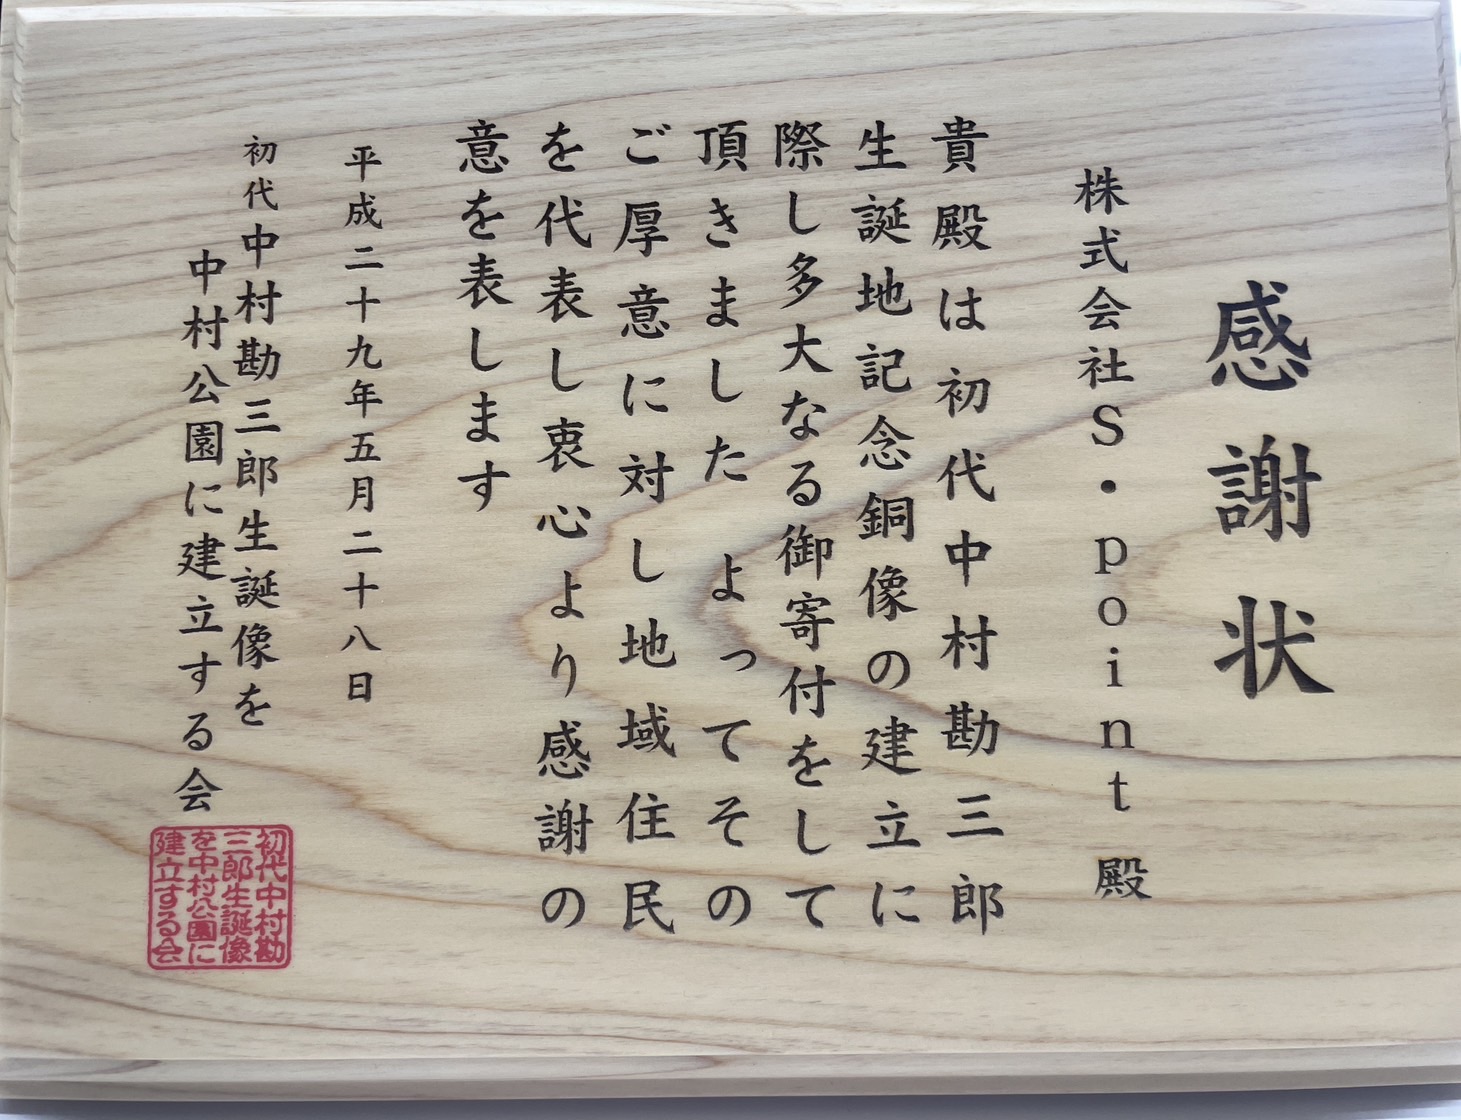 感謝状
株式会社S・point 殿
貴殿は初代中村勘三郎
生誕地記念銅像の建立に
際し多大なる御寄付をして
頂きました よってその
ご厚意に対し地域住民
を代表し衷心より感謝の
意を表します
平成二十九年五月二十八日
初代中村勘三郎生誕像を
中村公園に建立する会
初代中村勘
三郎生誕像
を中村公園に
建立する会